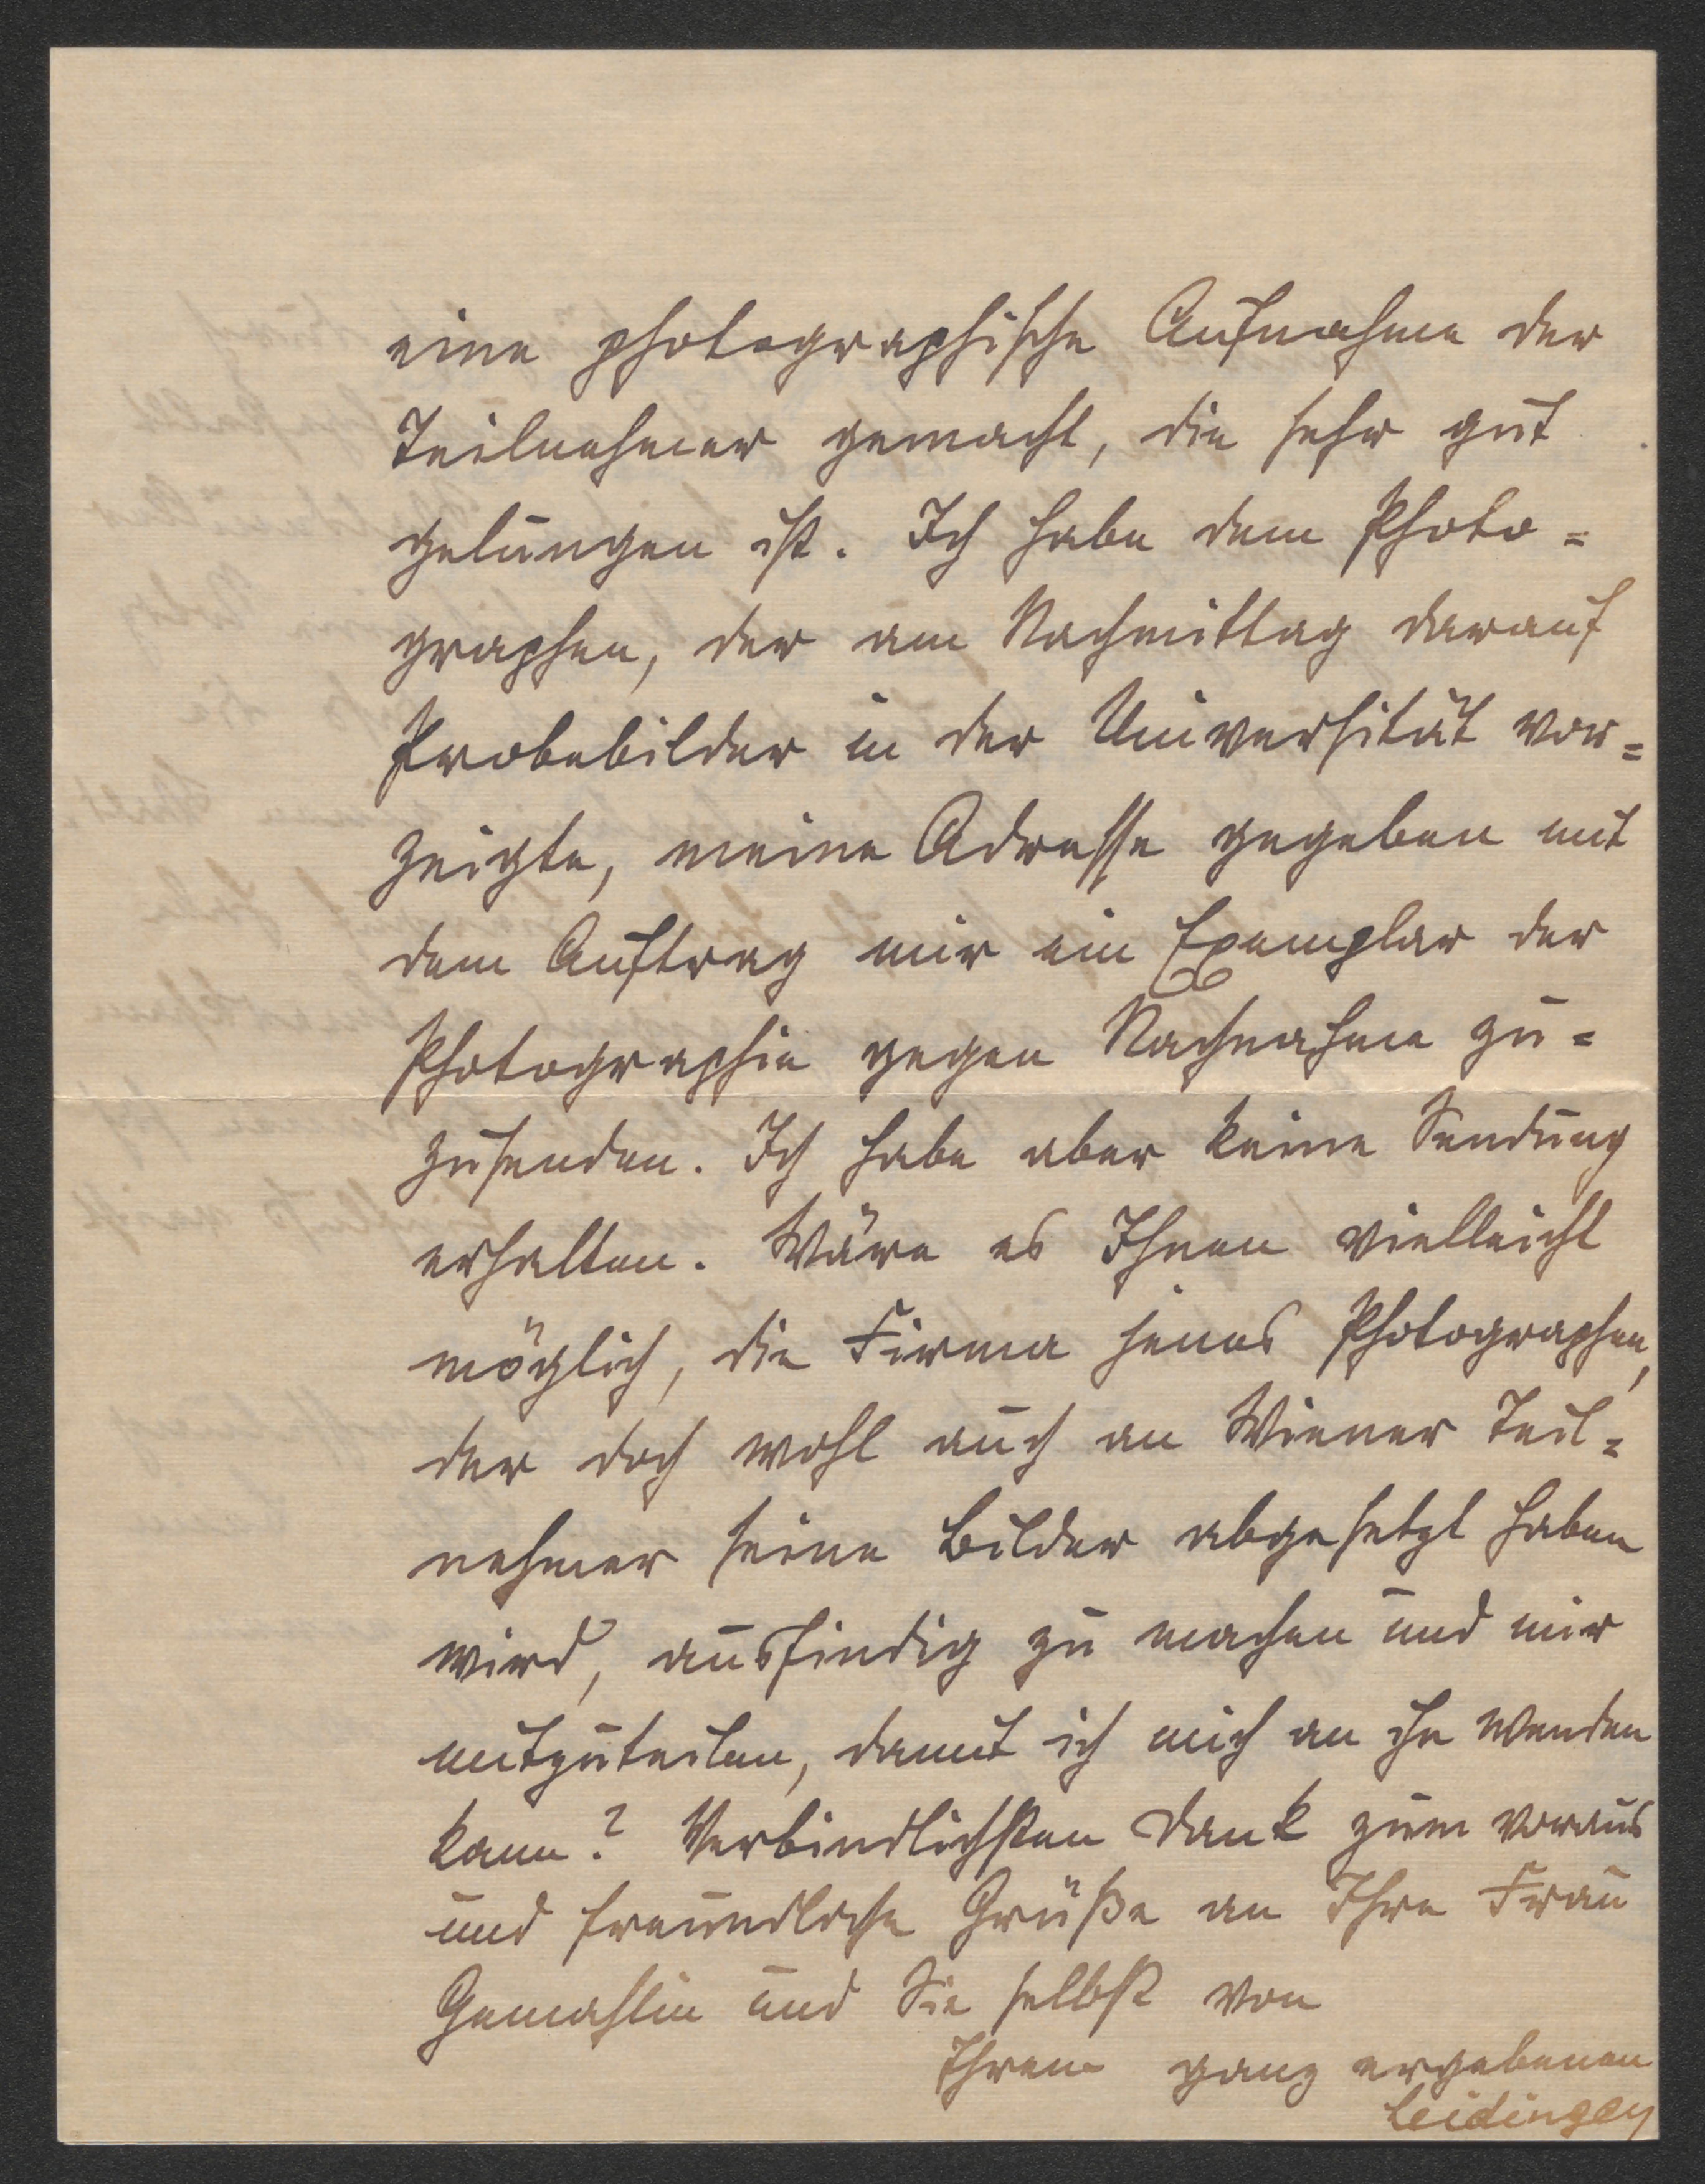 eine photographische Aufnahme der
Teilnehmer gemacht, die sehr gut
gelungen ist. Ich habe dem Photo=
graphen, der am Nachmittag darauf
Probebilder in der Universität vor=
zeigte, meine Adresse gegeben mit
dem Auftrag mir ein Exemplar der
Photographie gegen Nachnahme zu=
zusenden. Ich habe aber keine Sendung
erhalten. Wäre es Ihnen vielleicht
möglich, die Firma jenes Photographen,
der doch wohl auch an Wiener Teil=
nehmer seine Bilder abgesetzt haben
wird, ausfindig zu machen und mir
mitzuteilen, damit ich mich an ihn wenden
kann? Verbindlichsten Dank zum voraus
und freundliche Grüße an Ihre Frau
Gemahlin und Sie selbst von
Ihrem ganz ergebenen
Leidinger